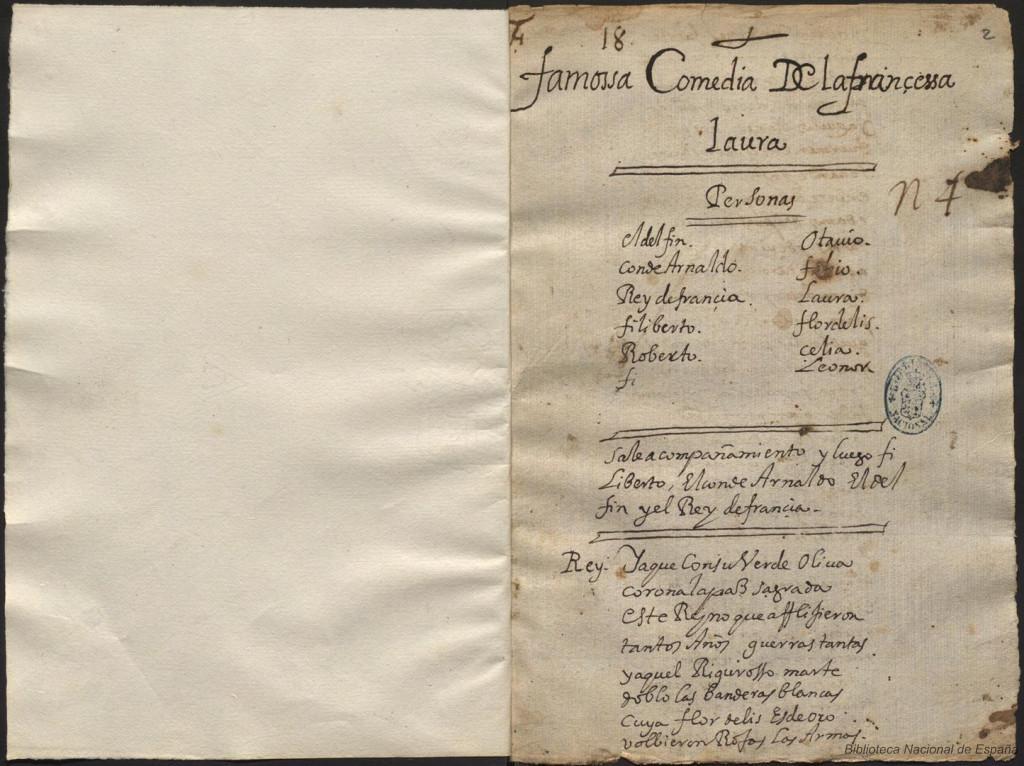 18
2
famossa Comedia De lafrancessa
laura
n 4
Personas
el delfin.
conde Arnaldo.
Rey defrancia.
filiberto.
Roberto.
fi
Otauio.
fabio.
Laura.
flordelis.
celia.
Leonor
saleacompañamiento y luego fi
Liberto, Elconde Arnaldo El del
fin yel Rey defrancia.
Rey. Yaque Consu Verde Oliua
coronalapaz sagrada
este Reyno que afflijieron
tantos Años guerras tantas
yaquel Rigurosso marte
doblo las banderas blancas
cuya flor delis Esdeoro
volbieron Rojas Las Armas.
NACIONAL
Biblioteca Nacional de España